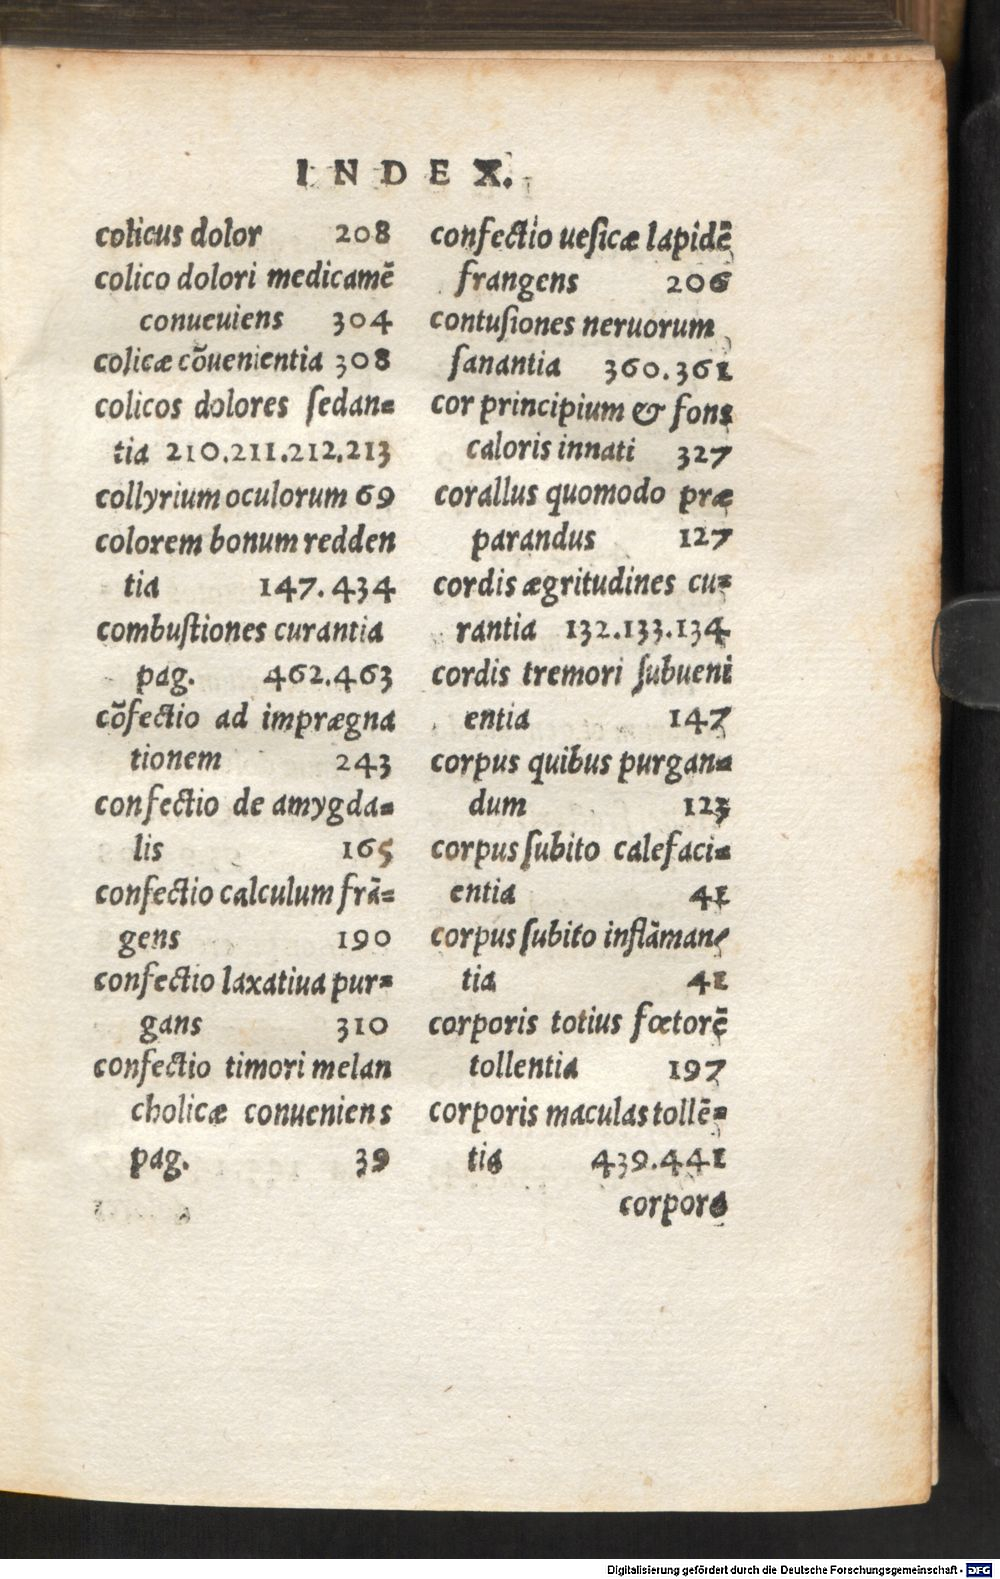 INDEX.
colicus dolor 208
colico dolori medicamẽ
conueuiens 304
colicæ cõuenientia 308
colicos dolores ſedan=
tia 210.211.212.213
collyrium oculorum 69
colorem bonum redden
tia 147.434
combuſtiones curantia
pag. 462.463
cõfectio ad imprægna
tionem 243
confectio de amygda=
lis 165
confectio calculum frã=
gens 190
confectio laxatiua pur=
gans 310
confectio timori melan
cholicæ conueniens
pag. 39
confectio ueſicæ lapidẽ
frangens 206
contuſiones neruorum
ſanantia 360.361
cor principium & fons
caloris innati 327
corallus quomodo præ
parandus 127
cordis ægritudines cu=
rantia 132.133.134
cordis tremori ſubueni
entia 147
corpus quibus purgan=
dum 123
corpus ſubito calefaci=
entia 41
corpus ſubito inflãman=
tia 41
corporis totius fœtorẽ
tollentia 197
corporis maculas tollẽ=
tia 439.441
corpora
Digitalisierung gefördert durch die Deutsche Forschungsgemeinschaft - DFG